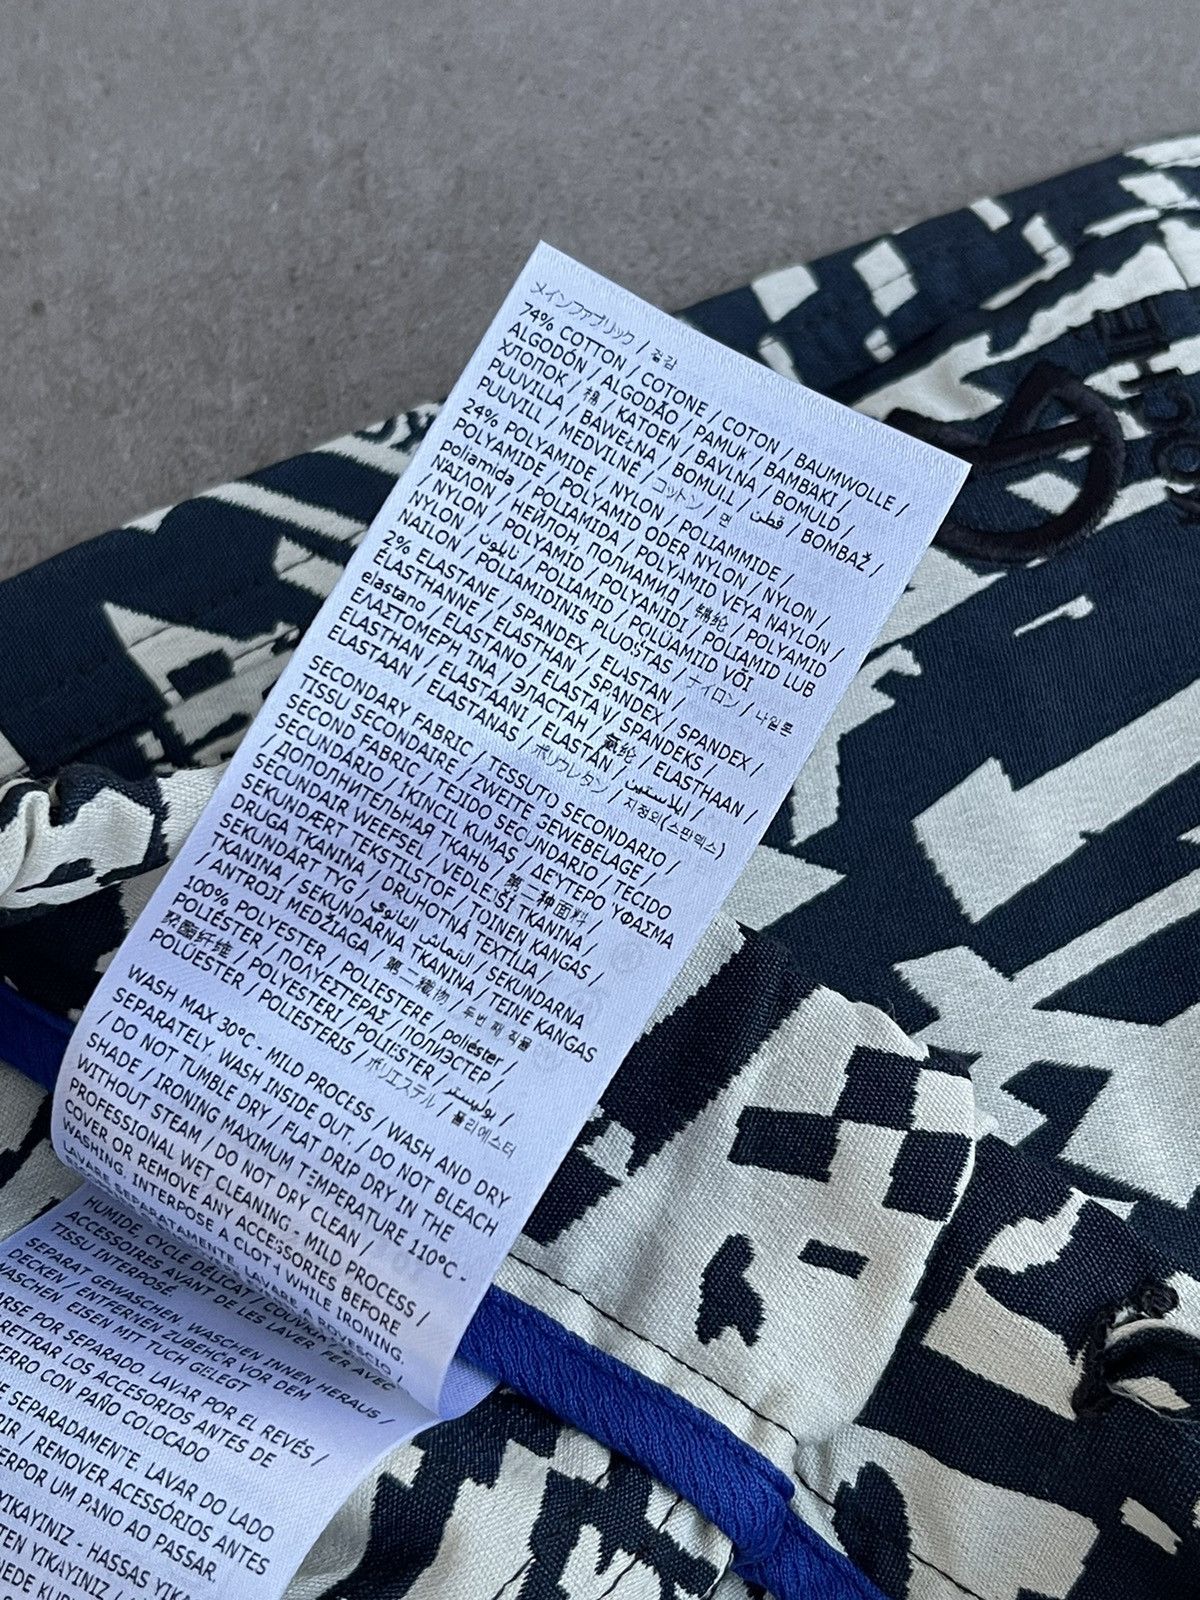 メインファブリック / 겉감
74% COTTON / COTONE / COTON / BAUMWOLLE /
ALGODÓN / ALGODÃO / PAMUK / BAMBAKI /
ХЛОПОК / 棉 / KATOEN / BAVLNA / BOMULD /
PUUVILLA / BAWEŁNA / BOMULL / قطن / BOMBAŽ /
PUUVILL / MEDVILNĖ / コットン / 면
24% POLYAMIDE / NYLON / POLIAMMIDE /
POLYAMIDE / POLYAMID ODER NYLON / NYLON /
poliamida / POLIAMIDA / POLYAMID VEYA NAYLON /
ΝΑΙΛΟΝ / НЕЙЛОН, ПОЛИАМИД / 锦纶 / POLYAMID
/ NYLON / POLYAMID / POLYAMIDI / POLIAMID LUB
NYLON / نايلون / POLIAMID / POLÜAMIID VÕI
NAILON / POLIAMIDINIS PLUOŠTAS / ナイロン / 나일론
2% ELASTANE / SPANDEX / ELASTAN /
ÉLASTHANNE / ELASTHAN / SPANDEX / SPANDEX /
elastano / ELASTANO / ELASTAN / SPANDEKS /
ΕΛΑΣΤΟΜΕΡΗ ΙΝΑ / ЭЛАСТАН / 氨纶 / ELASTHAAN /
ELASTHAN / ELASTAANI / ELASTAN / ايلاستين /
ELASTAAN / ELASTANAS / ポリウレタン / 지정외(스판덱스)
SECONDARY FABRIC / TESSUTO SECONDARIO /
TISSU SECONDAIRE / ZWEITE GEWEBELAGE /
SECOND FABRIC / TEJIDO SECUNDARIO / TECIDO
SECUNDÁRIO / İKİNCİL KUMAŞ / ΔΕΥΤΕΡΟ ΥΦΑΣΜΑ
/ ДОПОЛНИТЕЛЬНАЯ ТКАНЬ / 第二种面料 /
SECUNDAIR WEEFSEL / VEDLEJŠÍ TKANINA /
SEKUNDÆRT TEKSTILSTOF / TOINEN KANGAS /
DRUGA TKANINA / DRUHOTNÁ TEXTÍLIA /
SEKUNDÄRT TYG / القماش الثانوي / SEKUNDARNA
TKANINA / SEKUNDARNA TKANINA / TEINE KANGAS
/ ANTROJI MEDŽIAGA / 第二織物 / 두번 째 직물
100% POLYESTER / POLIESTERE / poliéster /
POLIÉSTER / ΠΟΛΥΕΣΤΕΡΑΣ / ПОЛИЭСТЕР /
聚酯纤维 / POLYESTERI / POLIESTER / بوليستر /
POLÜESTER / POLIESTERIS / ポリエステル / 폴리에스터
WASH MAX 30°C - MILD PROCESS / WASH AND DRY
SEPARATELY. WASH INSIDE OUT. / DO NOT BLEACH
/ DO NOT TUMBLE DRY / FLAT DRIP DRY IN THE
SHADE / IRONING MAXIMUM TEMPERATURE 110°C -
WITHOUT STEAM / DO NOT DRY CLEAN /
PROFESSIONAL WET CLEANING - MILD PROCESS /
COVER OR REMOVE ANY ACCESSORIES BEFORE
WASHING. INTERPOSE A CLOTH WHILE IRONING.
LAVARE SEPARATAMENTE. LAVARE A ROVESCIO
HUMIDE, CYCLE DÉLICAT / COUVRIR
ACCESSOIRES AVANT DE LES LAVER. FER AVEC
TISSU INTERPOSÉ
SEPARAT GEWASCHEN. WASCHEN INNEN HERAUS /
DECKEN / ENTFERNEN ZUBEHÖR VOR DEM
WASCHEN. EISEN MIT TUCH GELEGT
POR SEPARADO. LAVAR POR EL REVÉS /
RETIRAR LOS ACCESORIOS ANTES DE
CON PAÑO COLOCADO
SEPARADAMENTE. LAVAR DO LADO
/ REMOVER ACESSÓRIOS ANTES
POR UM PANO AO PASSAR.
YIKAYINIZ - HASSAS
YIKAYINIZ /